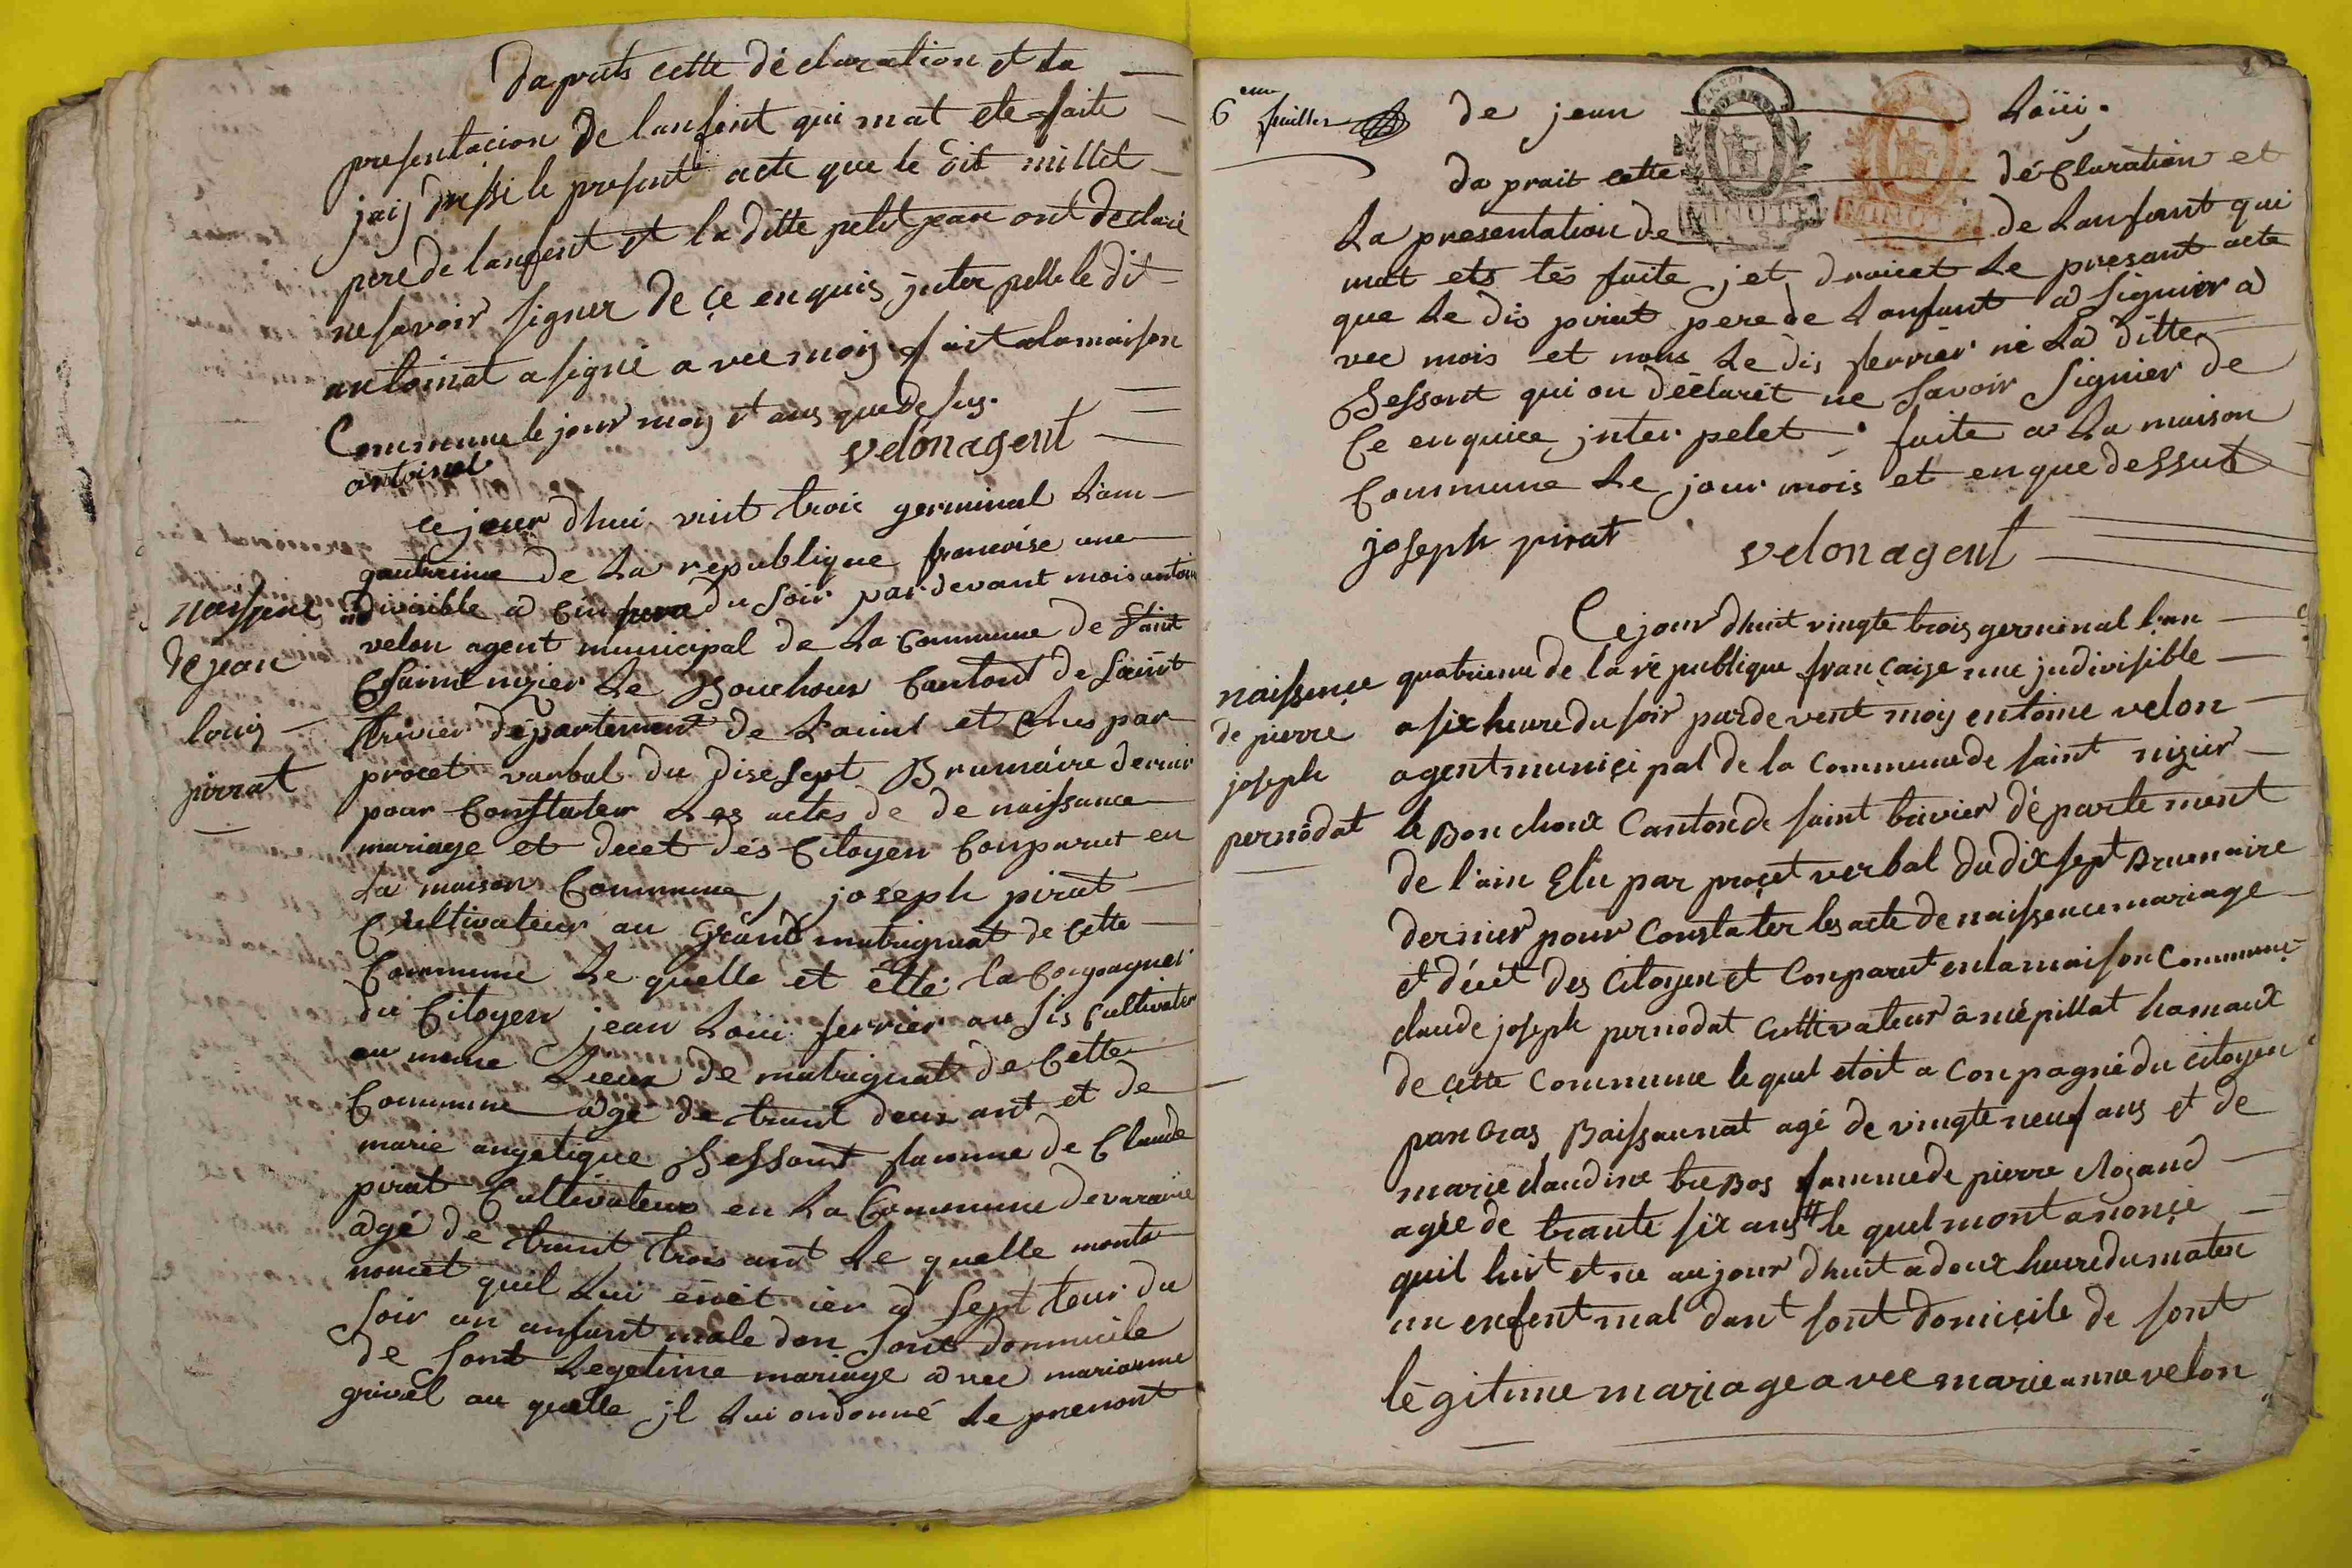 da prets cette déclaration et la
presentacion de lanfent qui mat ete faite
jaij dressé le present acte que le dit millet
pere de lanfent et la ditte petit jean ont declaré
ne savoir signer de ce enquis jnter pelle le dit
antoinat a signé a vec moij fait a la maison
Commune le jour moij et ans que desus.
antoinat velon agent
ce jour dhui vint troic germinal Lam
qautreime de La republique francoise une
naissence
de jean
louis
pirrat
indivisible a cin heure du soir par devant mois antoin
velon agent municipal de La Commune de Saint
Saint nizier Le Bouchous Cantont de Saint
trivier département de Lains et Elus par
procet varbal du disesept Brumaire dernier
pour Constater Les actes de de naissance
mariage et decet des Citoyen Comparut en
La maison Commune, joseph pirat
Cultivateur au Grand mutrignat de Cette
Commune Le quelle et étté la Compagner
du Citoyen jean Loui ferrier au sis Cultivater
au meme Lieux de mutrignat de Cette
Commune agé de trant deux ant et de
marie angelique Sessont famme de Claude
pirat Cultivateur en La Commune de varaine
agé de trant trois ant Le quelle monta
noncet quil Lui enet ier a sept teur du
soir un anfant male dan sont dommicile
de sont Legetime mariage a vec marianne
grivel au quelle jl Lui ondonné Le prenont
6eme fuillet
de jean Loüi.
da prait cette déClaration et
La presentation de de Lanfant qui
mat ets tés faite jet draicet Le presant acte
que Le dis pirat pere de Lanfant a signier a
vec mois et nous Le dis ferrier ni La ditte
Sessont qui on déClarét ne savoir signier de
Ce enquice jnter pelet faite a La maison
Commune Le jour mois et enque dessut
joseph pirat velon agent
MINUTE
MINUTE
Ce jour dhuit vingte trois germinal l'an
naissence
de pierre
joseph
pernodat
quatrieme de la ré publique française une jndivisible
a six heure du soir par de vent moij entoine velon
agent muniçi pal de la Commune de saint nizier
le Bouchoux Canton de saint trivier dé parte ment
de l'ain Elu par proçet verbal du dix sept Brumaire
dernier pour Constater les acte de naissence mariage
et décét des Citoyen et Conparut en la maison Commune
claude joseph pernodat Cultivateur a mépillat hamaux
de çette Commune le quel etoit a Conpagnie du Citoyen
pan Cras Baissaunat agé de vingte neuf ans et de
marie claudine bre Bos famme de pierre Clozand
agée de trante six ans le quel mont anonçé
quil luit et ne aujour dhuit a deux heure du maten
un enfent mal dant sont domiçile de sont
légitime mariage a vec marie anne velon